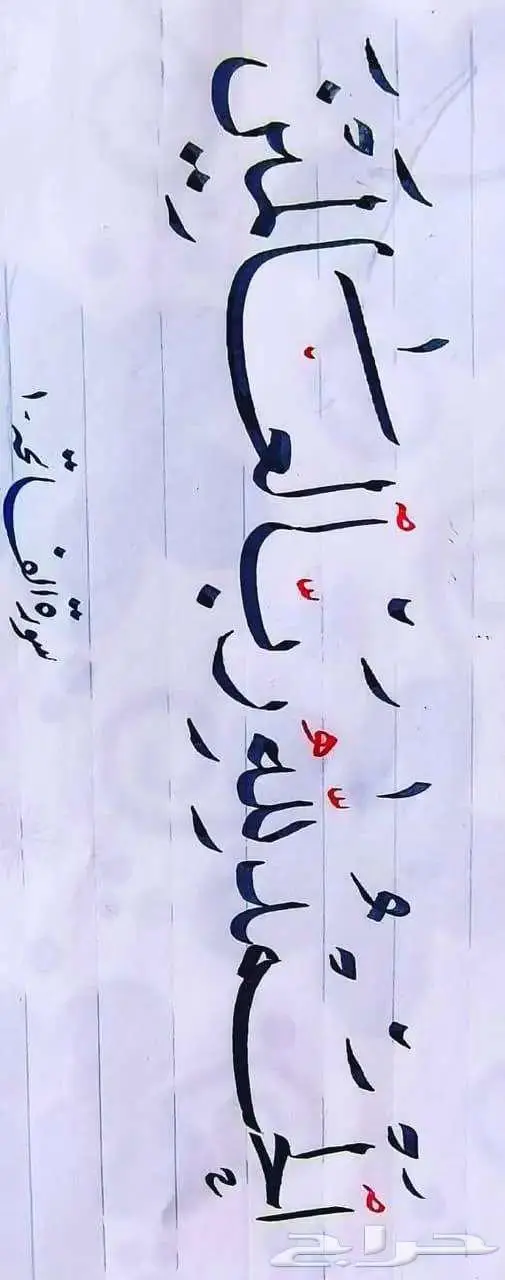 الحمد لله رب العالمين
سورة الفاتحة
حراج